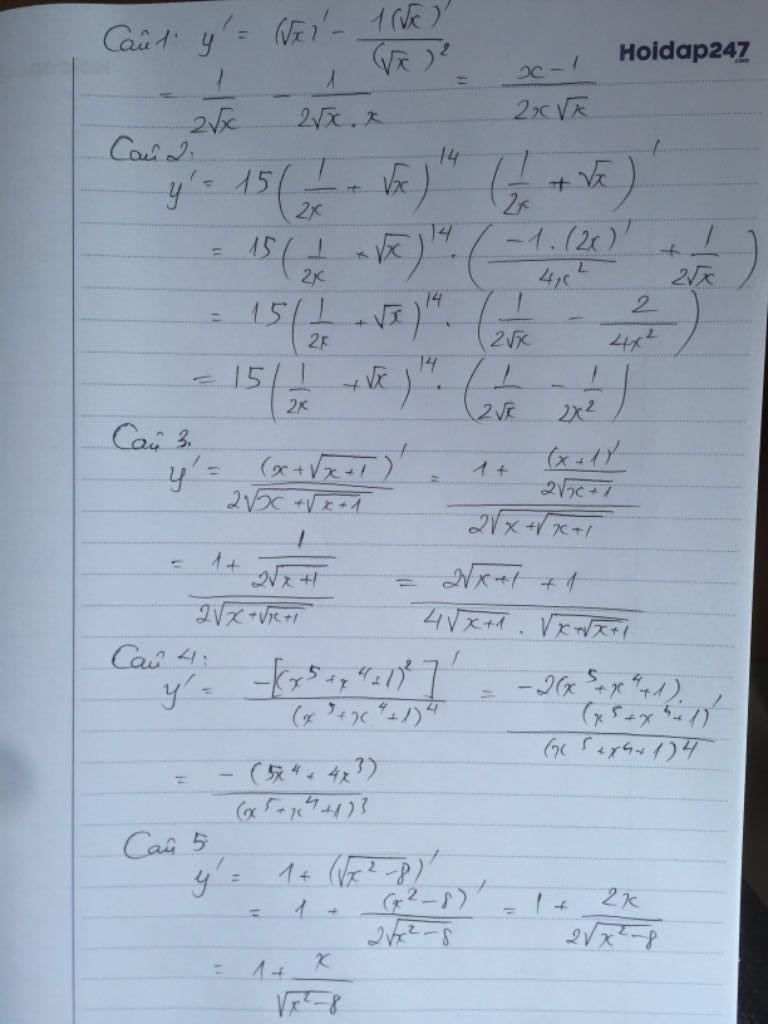 Câu 1: y' = (√x)' - 1(√x)'/(√x)²
Hoidap247.com
= 1/(2√x) - 1/(2√x . x) = (x-1)/(2x√x)
Câu 2:
y' = 15(1/(2x) + √x)^14 (1/(2x) + √x)'
= 15(1/(2x) + √x)^14 . (-1.(2x)'/(4x²) + 1/(2√x))
= 15(1/(2x) + √x)^14 . (1/(2√x) - 2/(4x²))
= 15(1/(2x) + √x)^14 . (1/(2√x) - 1/(2x²))
Câu 3.
y' = (x+√(x+1))'/(2√(x+√(x+1))) = (1 + (x+1)'/(2√(x+1)))/(2√(x+√(x+1)))
= (1 + 1/(2√(x+1)))/(2√(x+√(x+1))) = (2√(x+1) + 1)/(4√(x+1) . √(x+√(x+1)))
Câu 4:
y' = -[(x⁵+x⁴+1)²]'/(x⁵+x⁴+1)⁴ = -2(x⁵+x⁴+1).(x⁵+x⁴+1)'/(x⁵+x⁴+1)⁴
= -(5x⁴+4x³)/(x⁵+x⁴+1)³
Câu 5
y' = 1 + (√(x²-8))'
= 1 + (x²-8)'/(2√(x²-8)) = 1 + 2x/(2√(x²-8))
= 1 + x/√(x²-8)